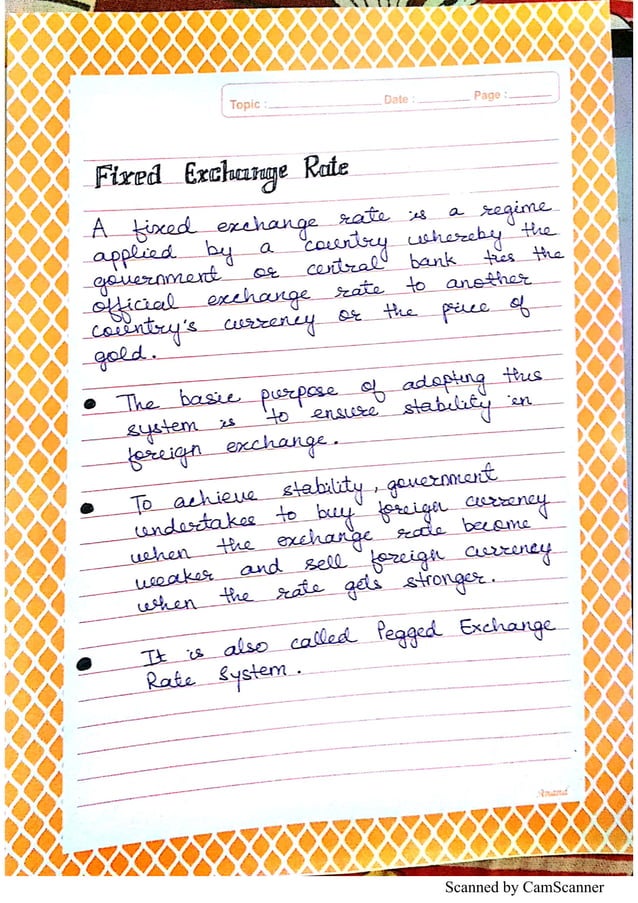 Topic : Date : Page :
Fixed Exchange Rate
A fixed exchange rate is a regime
applied by a country whereby the
government or central bank ties the
official exchange rate to another
country's currency or the price of
gold.
The basic purpose of adopting this
system is to ensure stability in
foreign exchange.
To achieve stability, government
undertakes to buy foreign currency
when the exchange rate become
weaker and sell foreign currency
when the rate gets stronger.
It is also called Pegged Exchange
Rate System.
Anand
Scanned by CamScanner